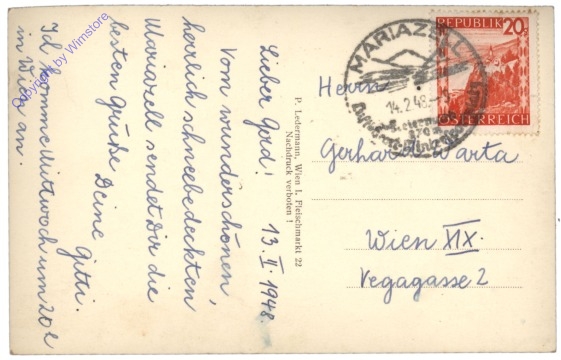 Lieber Gerd! 13.II.1948.
Vom wunderschönen,
herrlich schneebedeckten
Mariazell sendet Dir die
besten Grüße Deine
Gitti.
Ich komme Mittwoch um 20h
in Wien an.
P. Ledermann, Wien I, Fleischmarkt 22
Nachdruck verboten!
MARIAZELL
14.2.48
REPUBLIK 20g
ÖSTERREICH
Herrn
Gerhard Warta
Wien XIX.
Vegagasse 2
by Wimstore